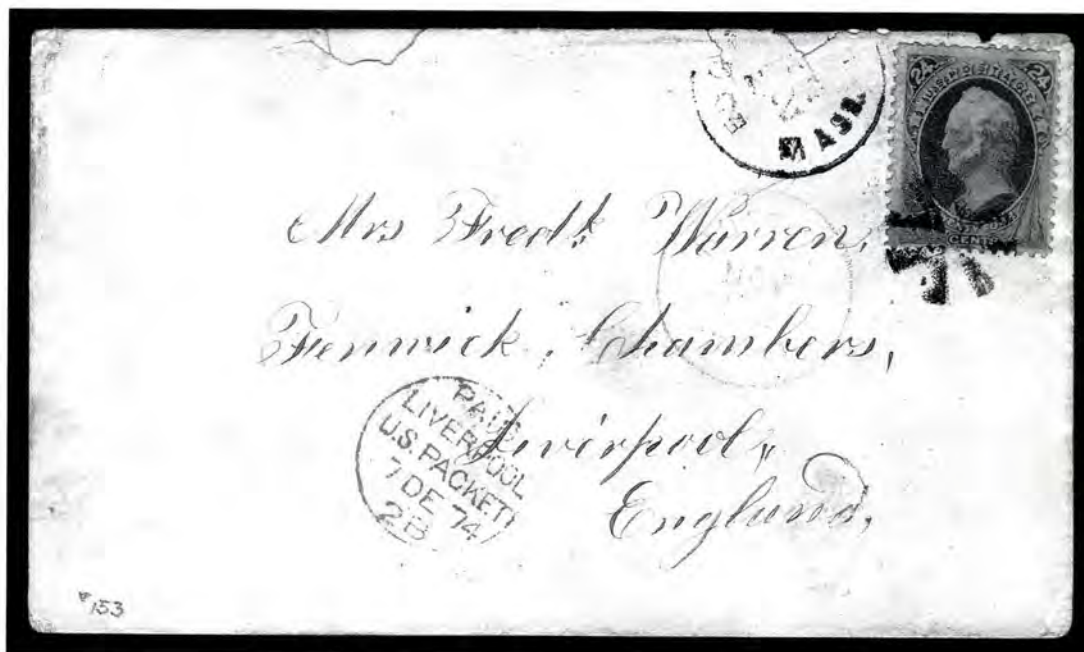 24 24
CENTS
MASS.
Mrs Fredk Warren,
Fenwick, Chambers,
Liverpool,
England,
PAID
LIVERPOOL
U.S. PACKET
7 DE 74
2B
153